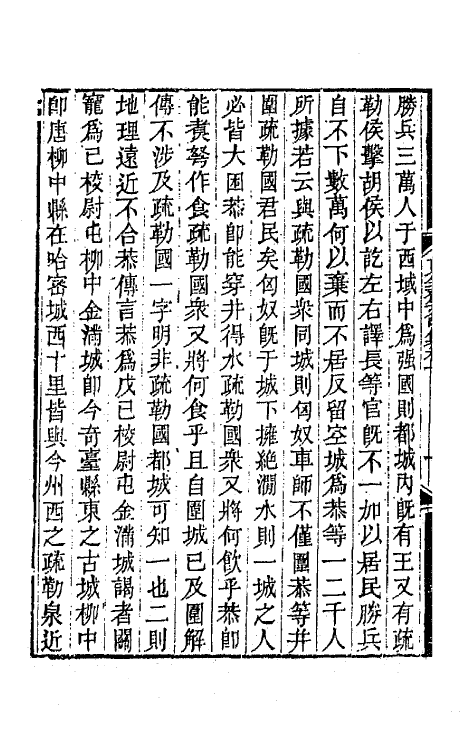 勝兵三萬人于西域中爲强國則都城內旣有王又有疏
勒侯擊胡侯以訖左右譯長等官旣不一加以居民勝兵
自不下數萬何以棄而不居反留空城爲恭等一二千人
所據若云與疏勒國衆同城則匈奴車師不僅圍恭等幷
圍疏勒國君民矣匈奴旣于城下擁絶澗水則一城之人
必皆大困恭卽能穿井得水疏勒國衆又將何飮乎恭卽
能煑弩作食疏勒國衆又將何食乎且自圍城已及圍解
傳不涉及疏勒國一字明非疏勒國都城可知一也二則
地理遠近不合恭傳言恭爲戊已校尉屯金滿城謁者關
寵爲已校尉屯柳中金滿城卽今奇臺縣東之古城柳中
卽唐柳中縣在哈密城西十里皆與今州西之疏勒泉近